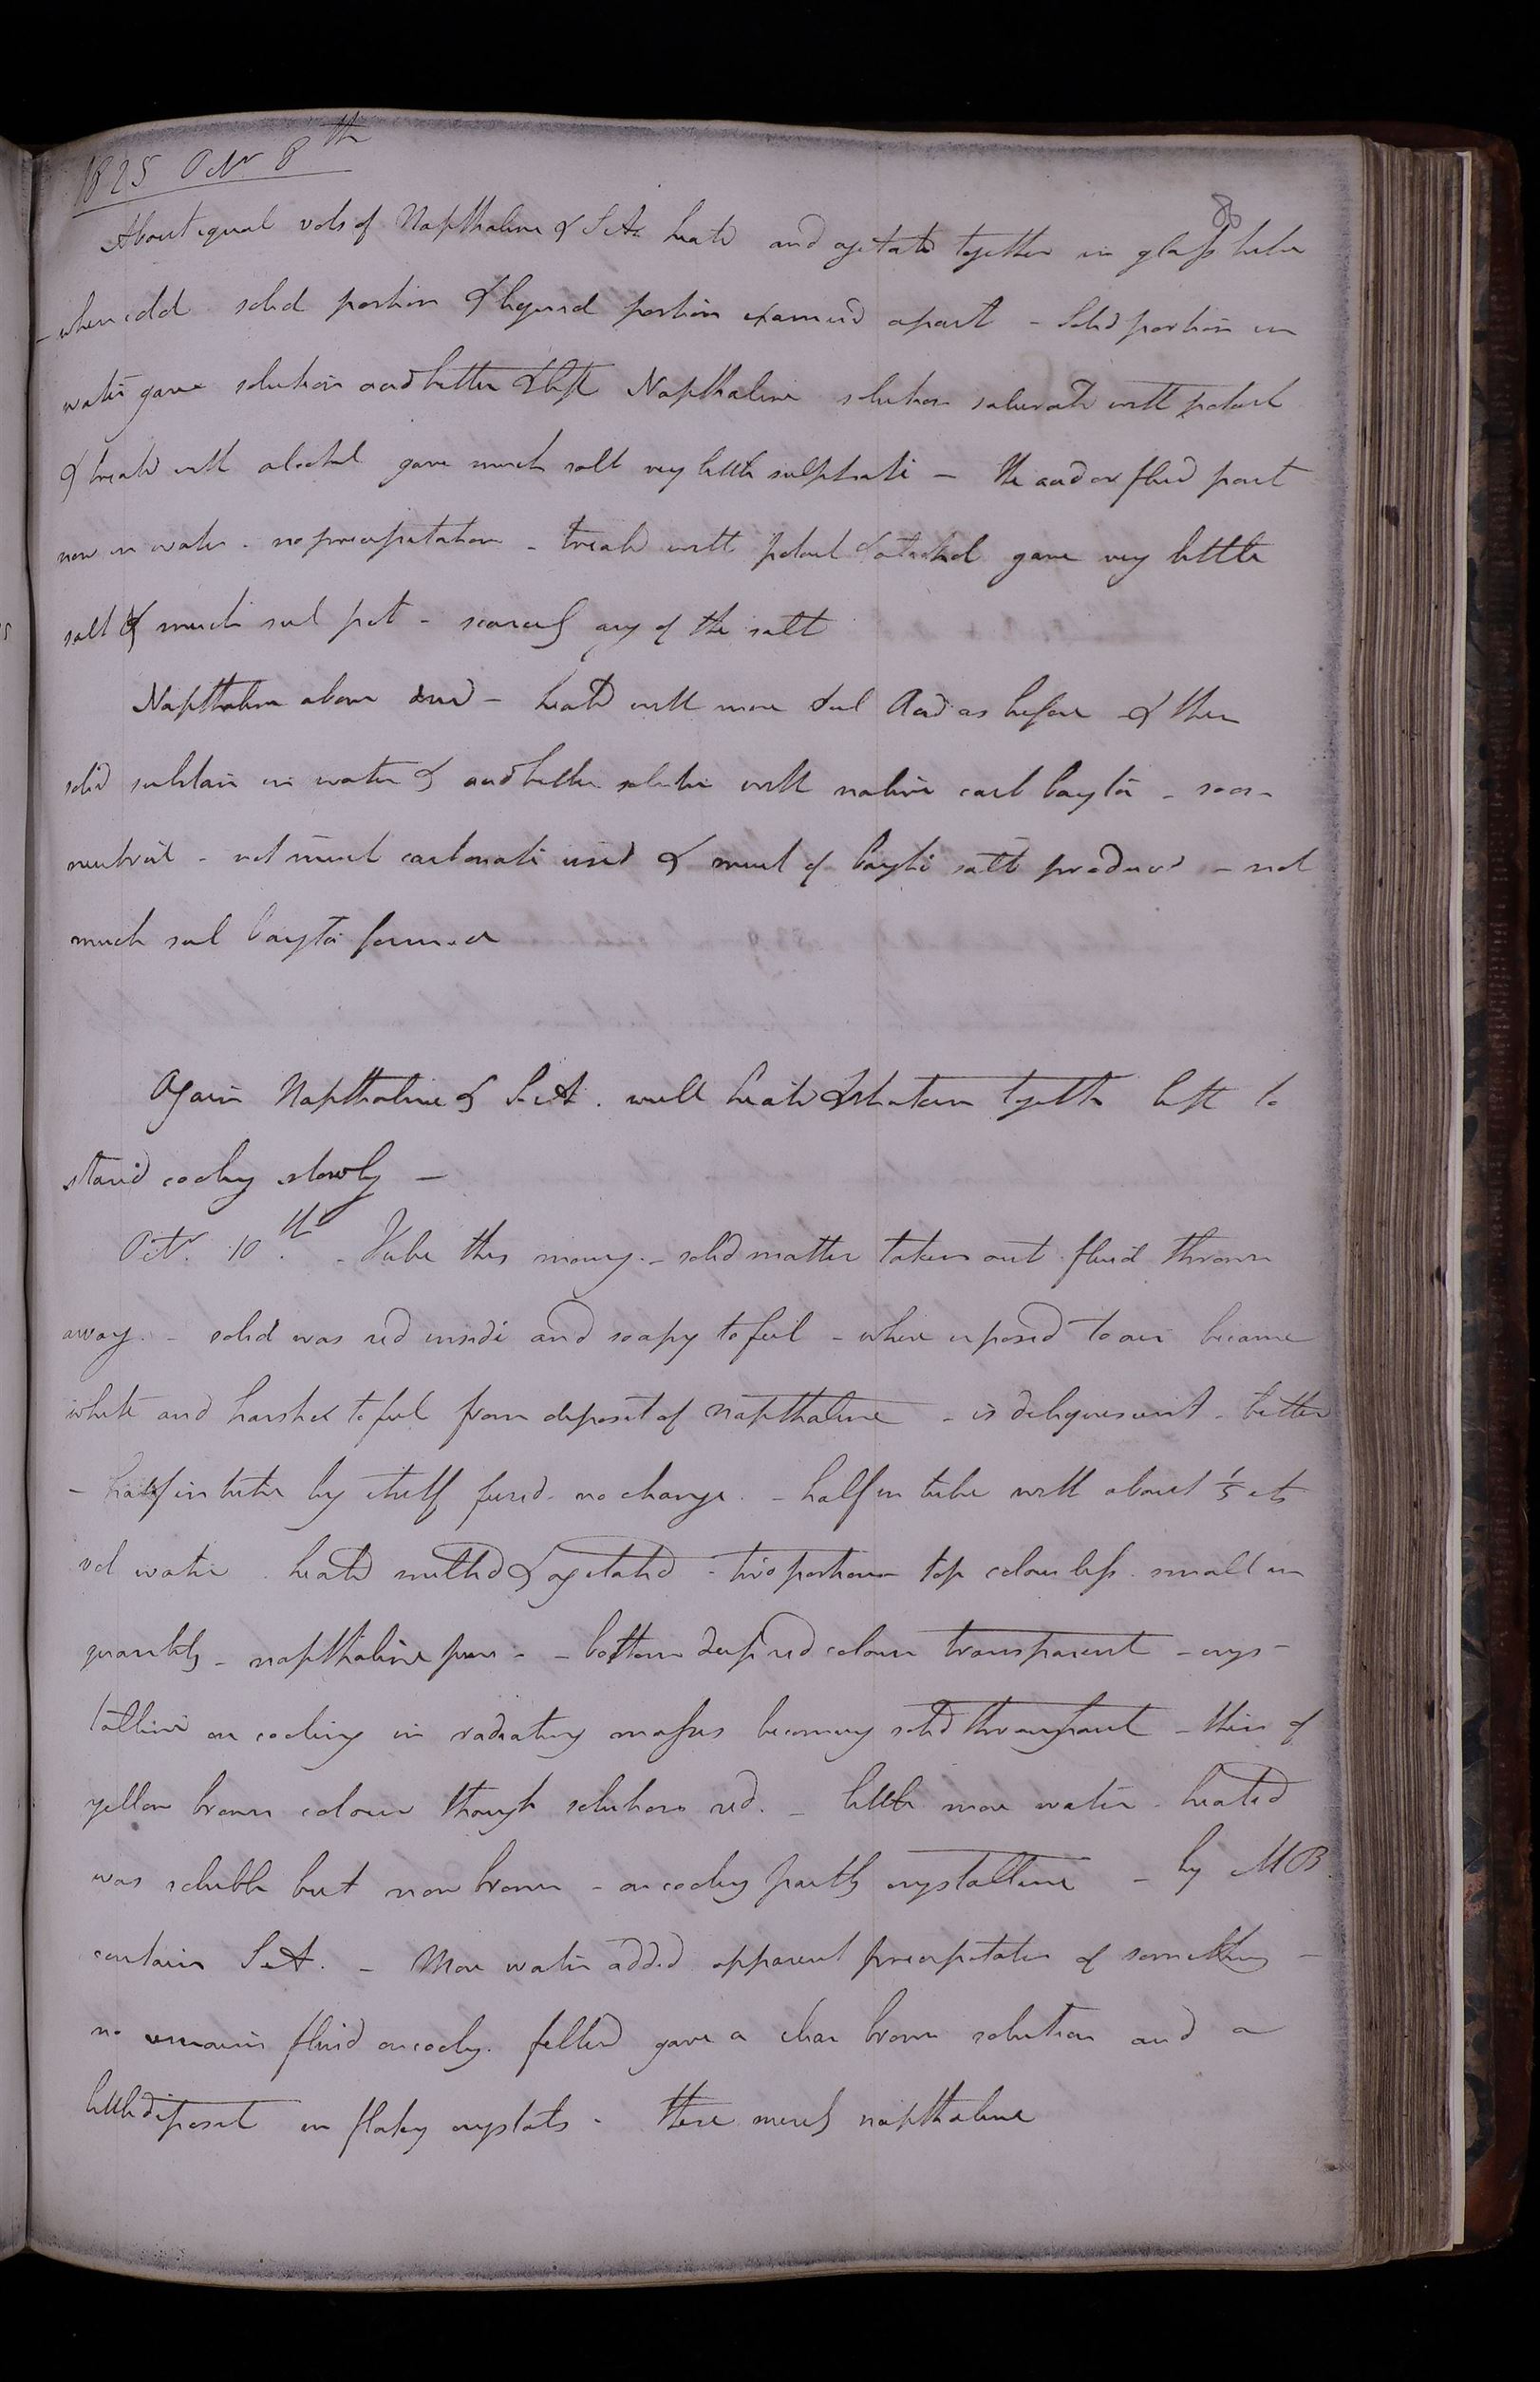 1825 Octr 8th
88
About equal vols of Napthaline & S A heated and agitated together in glass tube
- when cold solid portion & liquid portion examined apart - Solid portion in
water gave solution acid bitter & left Napthaline solution saturated with potash
& treated with alcohol gave much salt very little sulphate - the acid or fluid part
now in water - no precipitation - treated with potash & alcohol gave very little
salt & much sul pot - scarcely any of the salt
Napthaline above dried - heated with more Sul Acid as before & then
solid substance in water & acid bitter solution with native carb baryta - soon
neutral - not much carbonate used & much of baryta salt produced - not
much sul baryta formed
Again Napthaline & S A. well heated & shaken together left to
stand cooling slowly -
Octr. 10th. - Tube this morng. - solid matter taken out fluid thrown
away. - solid was red inside and soapy to feel - when exposed to air became
white and harsher to feel from deposit of napthaline - is deliquescent - bitter
- half in tube by itself fused. no change. - half in tube with about 1/5 its
vol water heated melted & agitated - two portions top colourless small in
quantity - napthaline pure - - bottom deep red colour transparent - crys-
talline on cooling in radiating masses becoming solid throughout - this of
yellow brown colour though solution red. - little more water heated
was soluble but now brown - on cooling partly crystalline - by M B.
contains S A. - More water added apparent precipitation of something -
no remains fluid on cooling. filtered gave a clear brown solution and a
little deposit in flakey crystals - these merely napthaline